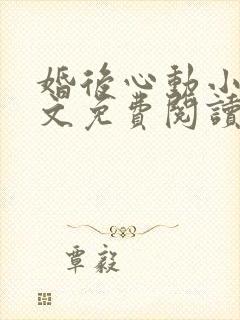 婚後心動小
文免費閱讀
覃毅